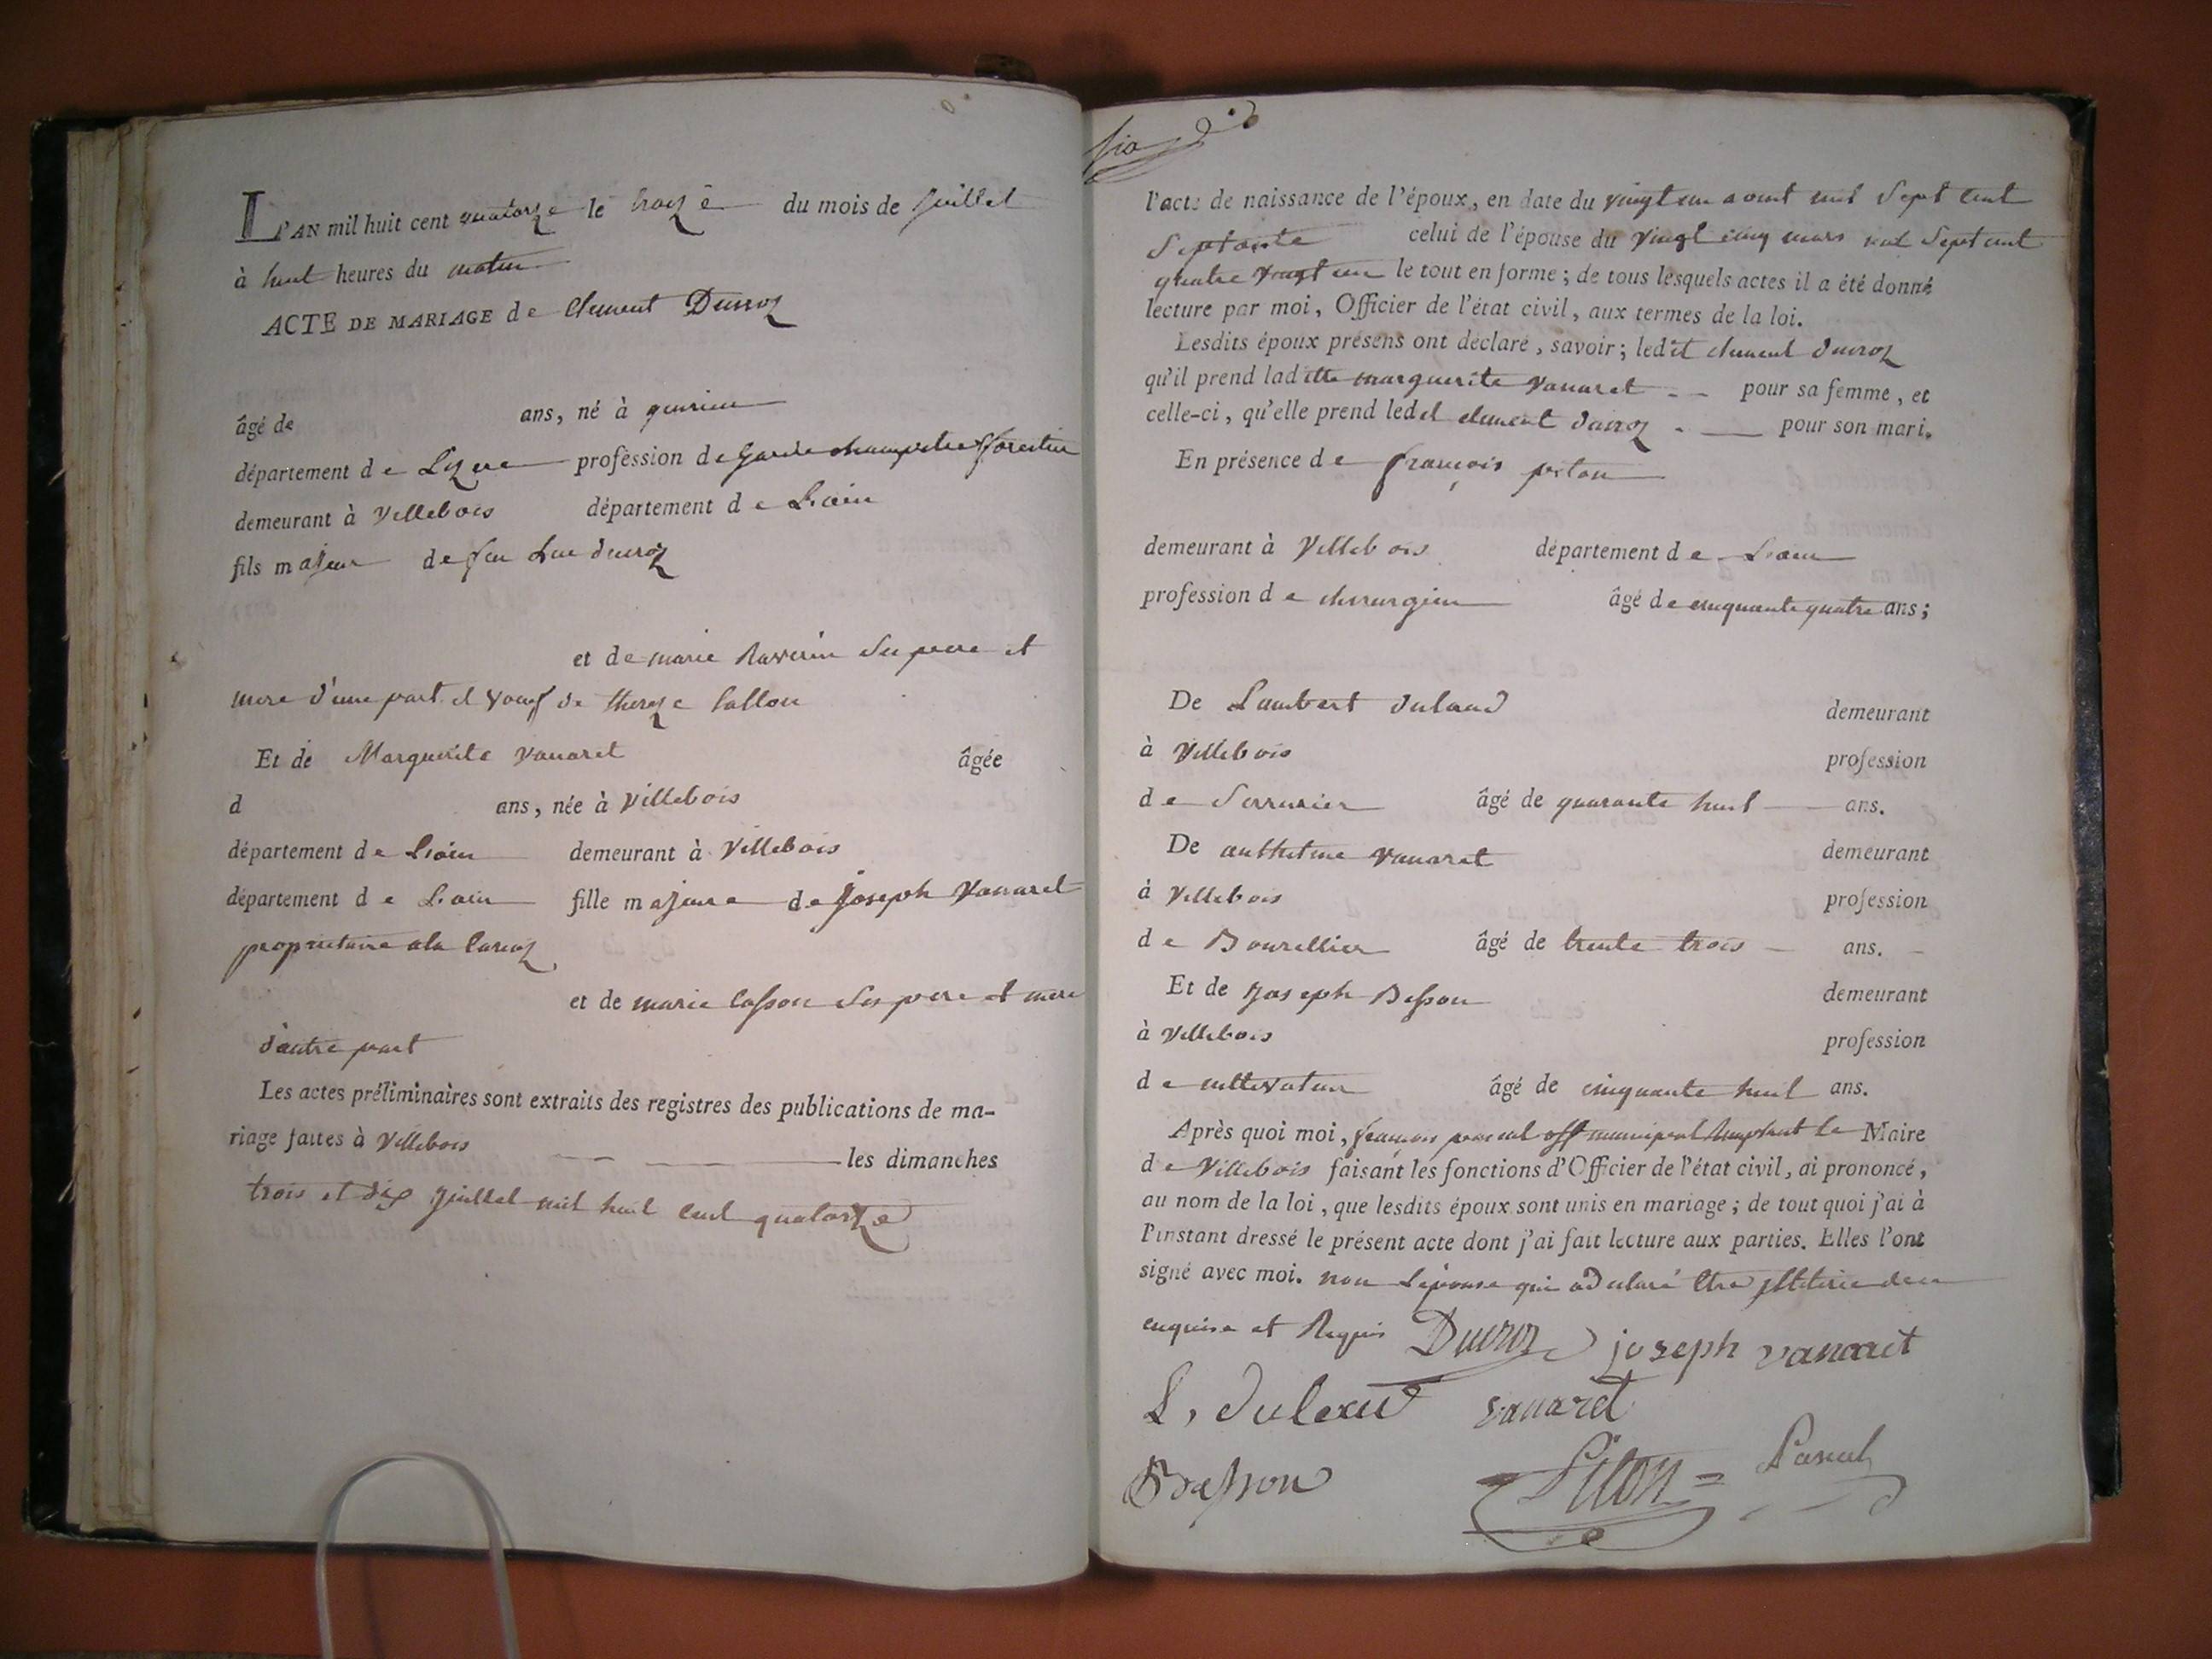 L'AN mil huit cent quatorze le treize du mois de juillet
à huit heures du matin
ACTE DE MARIAGE de Clement Ducroz
âgé de ans, né à
département de Lizere profession de Garde champetre & forestier
demeurant à Villebois département de Lain
fils majeur de feu Luc ducroz
et de marie Raverin Ses pere et
mere d'une part et veuf de thereze
Et de Marguerite vanaret âgée
d ans, née à Villebois
département de Lain demeurant à Villebois
département de Lain fille majeure de joseph Vanaret
proprietaire ala
et de marie Casson Ses pere et mere
dautre part
Les actes préliminaires sont extraits des registres des publications de ma-
riage faites à Villebois les dimanches
trois et dix juillet mil huit Cent quatorze
l'acte de naissance de l'époux, en date du vingt un aout mil Sept Cent
Septante celui de l'épouse du vingt cinq mars mil Sept cent
quatre vingt un le tout en forme ; de tous lesquels actes il a été donné
lecture par moi, Officier de l'état civil, aux termes de la loi.
Lesdits époux présens ont déclaré, savoir ; ledit clement ducroz
qu'il prend laditte marguerite vanaret pour sa femme, et
celle-ci, qu'elle prend ledet clement ducroz pour son mari.
En présence de françois piton
demeurant à Villebois département de Lain
profession de chirurgien âgé de cinquante quatre ans ;
De Lambert dulaud demeurant
à Villebois profession
de Serrurier âgé de quarante huit ans.
De anthelme vanaret demeurant
à Villebois profession
de Bourellier âgé de trente trois ans.
Et de joseph Besson demeurant
à Villebois profession
de cultivateur âgé de cinquante huit ans.
Après quoi moi, françois pascal off municipal Le Maire
de Villebois faisant les fonctions d'Officier de l'état civil, ai prononcé,
au nom de la loi, que lesdits époux sont unis en mariage ; de tout quoi j'ai à
l'instant dressé le présent acte dont j'ai fait lecture aux parties. Elles l'ont
signé avec moi. non Lépouse qui a declaré Etre jlliterée de ce
enquise et Requis Ducroz joseph vanaret
L, dulaud vanaret
Besson Piton Pascal